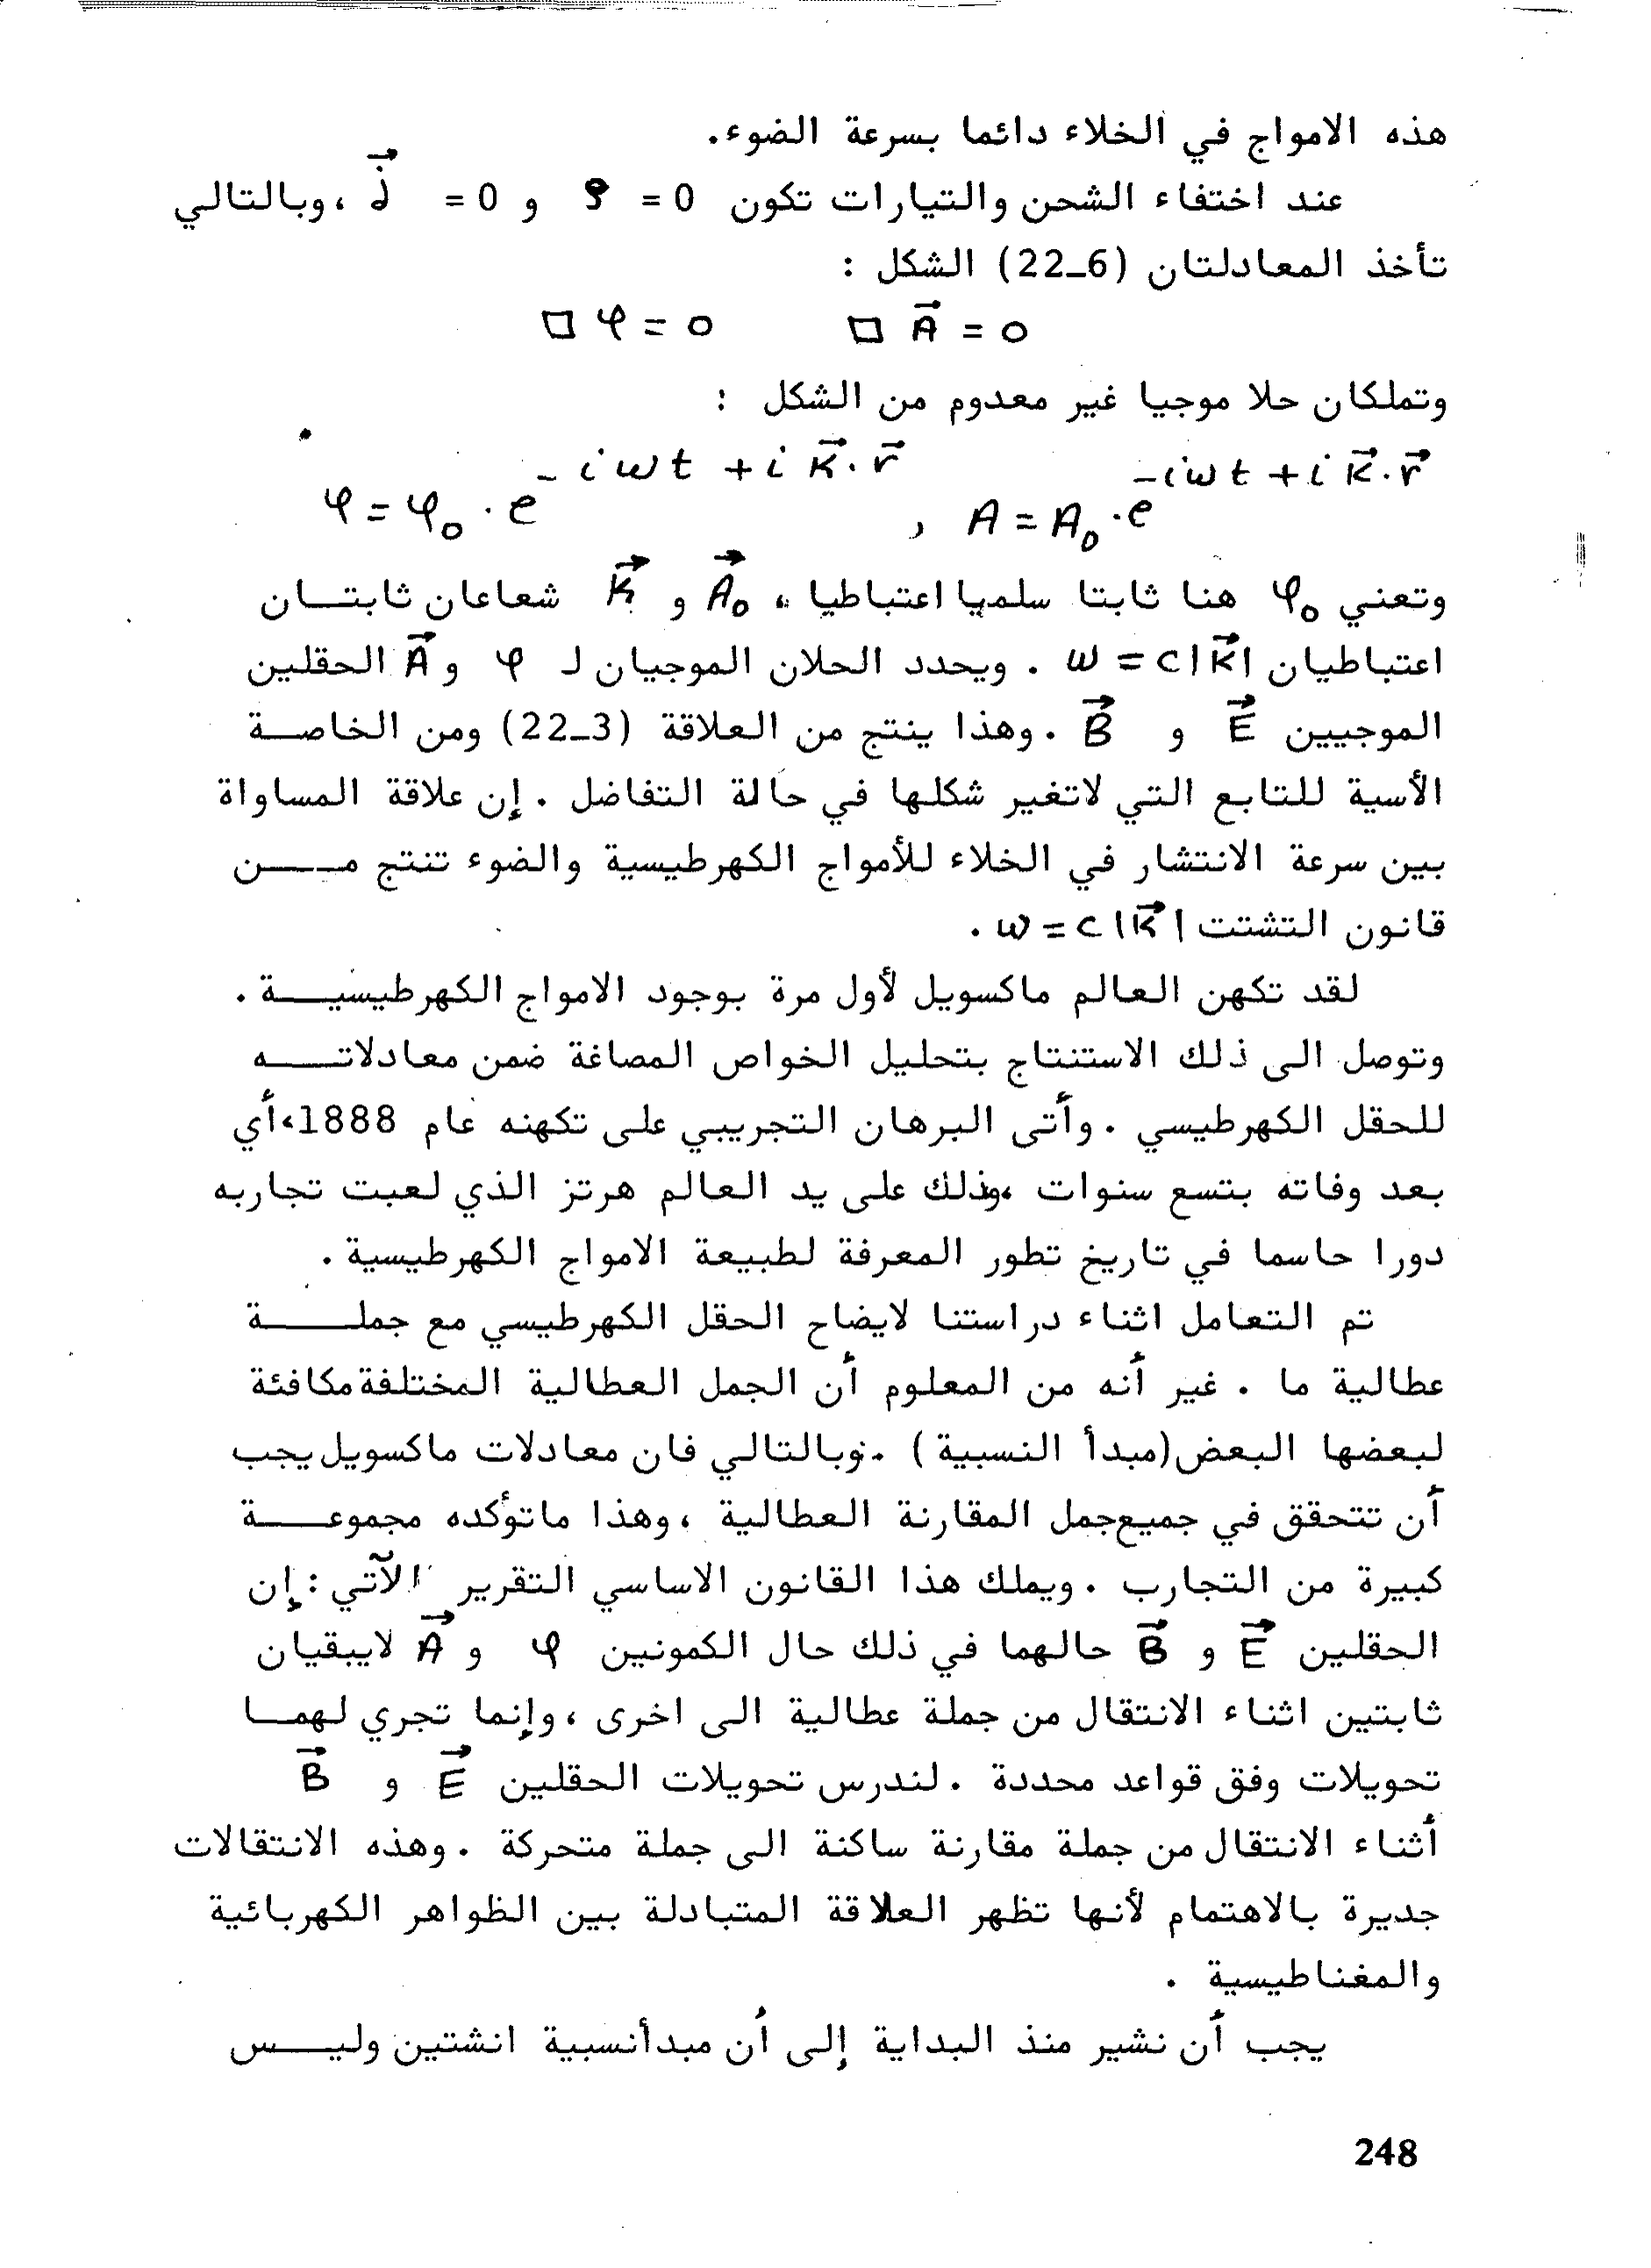 هذه الامواج في الخلاء دائما بسرعة الضوء.
عند اختفاء الشحن والتيارات تكون ρ = 0 و j⃗ = 0 ، وبالتالي
تأخذ المعادلتان (6_22) الشكل :
□ φ = 0 □ A⃗ = 0
وتملكان حلا موجيا غير معدوم من الشكل :
φ = φ₀ · e^(-iωt + i k⃗·r⃗) , A = A₀ · e^(-iωt + i k⃗·r⃗)
وتعني φ₀ هنا ثابتا سلميا اعتباطيا ، A⃗₀ و k⃗ شعاعان ثابتـــان
اعتباطيان ω = c|k⃗| . ويحدد الحلان الموجيان لـ φ و A⃗ الحقلين
الموجيين E⃗ و B⃗ . وهذا ينتج من العلاقة (3_22) ومن الخاصــة
الأسية للتابع التي لاتغير شكلها في حالة التفاضل . إن علاقة المساواة
بين سرعة الانتشار في الخلاء للأمواج الكهرطيسية والضوء تنتج مـــــن
قانون التشتت ω = c|k⃗| .
لقد تكهن العالم ماكسويل لأول مرة بوجود الامواج الكهرطيسيـــة .
وتوصل الى ذلك الاستنتاج بتحليل الخواص المصاغة ضمن معادلاتــــه
للحقل الكهرطيسي . وأتى البرهان التجريبي على تكهنه عام 1888،أي
بعد وفاته بتسع سنوات ،وذلك على يد العالم هرتز الذي لعبت تجاربه
دورا حاسما في تاريخ تطور المعرفة لطبيعة الامواج الكهرطيسية .
تم التعامل اثناء دراستنا لايضاح الحقل الكهرطيسي مع جملـــــة
عطالية ما . غير أنه من المعلوم أن الجمل العطالية المختلفة مكافئة
لبعضها البعض (مبدأ النسبية ) . وبالتالي فان معادلات ماكسويل يجب
أن تتحقق في جميع جمل المقارنة العطالية ، وهذا ماتؤكده مجموعــــة
كبيرة من التجارب . ويملك هذا القانون الاساسي التقرير الآتي : إن
الحقلين E⃗ و B⃗ حالهما في ذلك حال الكمونين φ و A⃗ لايبقيان
ثابتين اثناء الانتقال من جملة عطالية الى اخرى ، وإنما تجري لهمــا
تحويلات وفق قواعد محددة . لندرس تحويلات الحقلين E⃗ و B⃗
أثناء الانتقال من جملة مقارنة ساكنة الى جملة متحركة . وهذه الانتقالات
جديرة بالاهتمام لأنها تظهر العلاقة المتبادلة بين الظواهر الكهربائية
والمغناطيسية .
يجب أن نشير منذ البداية إلى أن مبدأنسبية انشتين وليــــس
248